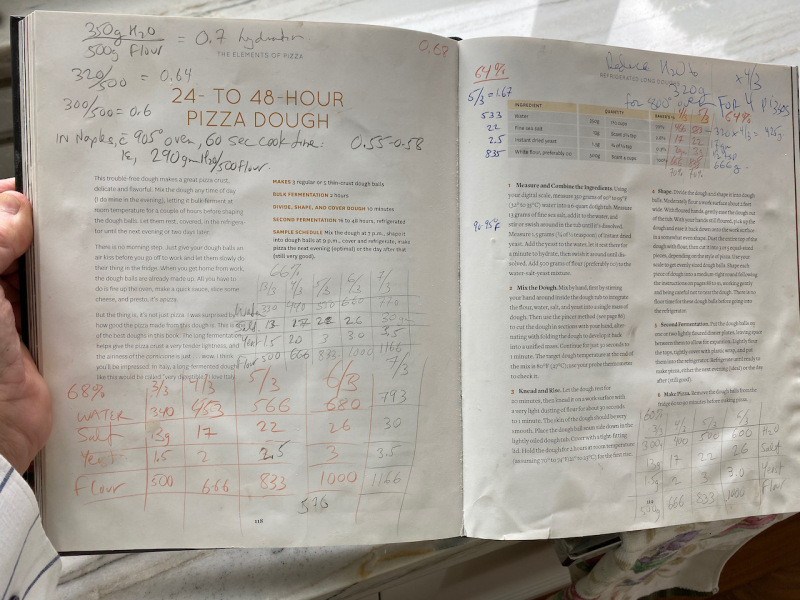 350g H2O
500g flour = 0.7 hydration
THE ELEMENTS OF PIZZA
0.68
320/500 = 0.64
300/500 = 0.6
24- TO 48-HOUR
PIZZA DOUGH
IN Naples, c̄ 905° oven, 60 sec cook time: 0.55-0.58
290g H2O/500 flour.
This trouble-free dough makes a great pizza crust,
delicate and flavorful. Mix the dough any time of day
(I do mine in the evening), letting it bulk-ferment at
room temperature for a couple of hours before shaping
the dough balls. Let them rest, covered, in the refrigera-
tor until the next evening or two days later.
There is no morning step. Just give your dough balls an
air kiss before you go off to work and let them slowly do
their thing in the fridge. When you get home from work,
the dough balls are already made up. All you have to
do is fire up the oven, make a quick sauce, slice some
cheese, and presto, it's pizza.
But the thing is, it's not just pizza. I was surprised
how good the pizza made from this dough is. This is
of the best doughs in this book. The long fermentation
helps give the pizza crust a very tender lightness, and
the airiness of the cornicione is just . . . wow. I think
you'll be impressed. In Italy, a long-fermented dough
like this would be called "very digestible." I love
MAKES 3 regular or 5 thin-crust dough balls
BULK FERMENTATION 2 hours
DIVIDE, SHAPE, AND COVER DOUGH 10 minutes
SECOND FERMENTATION 16 to 48 hours, refrigerated
SAMPLE SCHEDULE Mix the dough at 7 p.m., shape it
into dough balls at 9 p.m., cover and refrigerate, make
pizza the next evening (optional) or the day after that
(still very good).
66%
3/3 4/3 5/3 6/3 7/3
Water 330 440 550 660 770
Salt 13 17 22 26 30
Yeast 1.5 20 3 30 3.5
Flour 500 666 833 1000 1166
68% 3/3 4/3 5/3 6/3 7/3
WATER 340 453 566 680 793
Salt 13g 17 22 26 30
Yeast 1.5 2 2.5 3 3.5
Flour 500 666 833 1000 1166
576
118
64%
5/3 = 1.67
533
22
2.5
835
Reduce H2O to
320g
for 800° oven
x 4/3
FOR 4 pizzas
REFRIGERATED LONG DOUGHS
INGREDIENT QUANTITY
Water 350g
Fine sea salt 13g
Instant dried yeast 1.5g
White flour, preferably 00 500g
64%
320 x 4/3 = 425g
666g
1 Measure and Combine the Ingredients. Using
your digital scale, measure 350 grams of 90° to 95°F
(32° to 35°C) water into a 6-quart dough tub. Measure
13 grams of fine sea salt, add it to the water, and
stir or swish around in the tub until it's dissolved.
Measure 1.5 grams (3/4 of 1/2 teaspoon) of instant dried
yeast. Add the yeast to the water, let it rest there for
a minute to hydrate, then swish it around until dis-
solved. Add 500 grams of flour (preferably 00) to the
water-salt-yeast mixture.
90-95°F
2 Mix the Dough. Mix by hand, first by stirring
your hand around inside the dough tub to integrate
the flour, water, salt, and yeast into a single mass of
dough. Then use the pincer method (see page 86)
to cut the dough in sections with your hand, alter-
nating with folding the dough to develop it back
into a unified mass. Continue for just 30 seconds to
1 minute. The target dough temperature at the end of
the mix is 80°F (27°C); use your probe thermometer
to check it.
3 Knead and Rise. Let the dough rest for
20 minutes, then knead it on a work surface with
a very light dusting of flour for about 30 seconds
to 1 minute. The skin of the dough should be very
smooth. Place the dough ball seam side down in the
lightly oiled dough tub. Cover with a tight-fitting
lid. Hold the dough for 2 hours at room temperature
(assuming 70° to 74°F/21° to 23°C) for the first rise.
4 Shape. Divide the dough and shape it into dough
balls. Moderately flour a work surface about 2 feet
wide. With floured hands, gently ease the dough out
of the tub. With your hands still floured, pick up the
dough and ease it back down onto the work surface
in a somewhat even shape. Dust the entire top of the
dough with flour, then cut it into 3 or 5 equal-sized
pieces, depending on the style of pizza. Use your
scale to get evenly sized dough balls. Shape each
piece of dough into a medium-tight round following
the instructions on pages 88 to 91, working gently
and being careful not to tear the dough. There is no
floor time for these dough balls before going into
the refrigerator.
5 Second Fermentation. Put the dough balls on
one or two lightly floured dinner plates, leaving space
between them to allow for expansion. Lightly flour
the tops, tightly cover with plastic wrap, and put
them into the refrigerator. Refrigerate until ready to
make pizza, either the next evening (ideal) or the day
after (still good).
6 Make Pizza. Remove the dough balls from the
fridge 60 to 90 minutes before making pizza.
60%
3/3 4/3 5/3 6/3
300g 400 500 600 H2O
13g 17 22 26 Salt
1.5g 2 2.5 3.0 Yeast
500g 666 833 1000 Flour